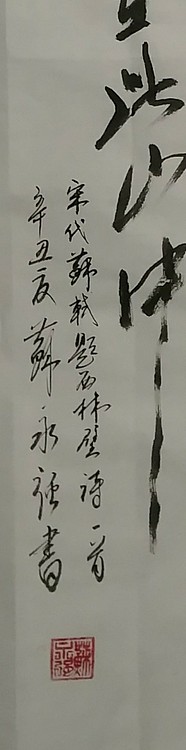 此山中
宋代蘇軾題西林壁詩一首
辛丑夏蘇永強書